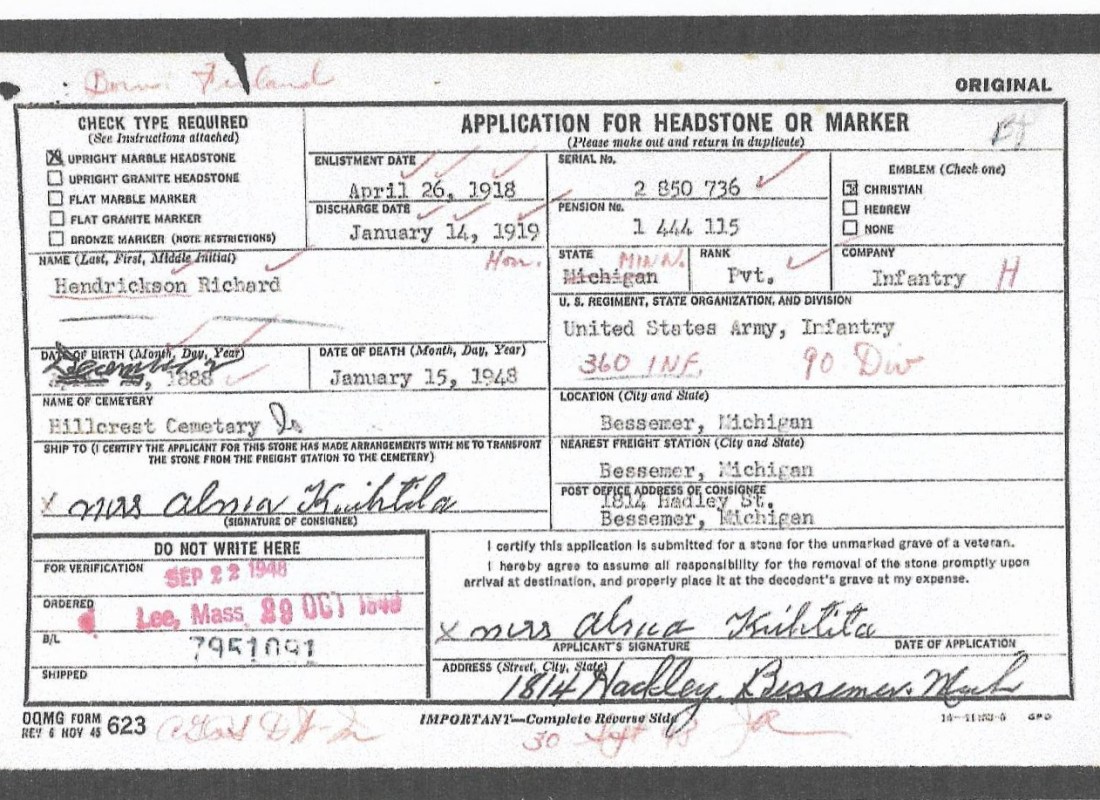 Born: Finland
ORIGINAL
CHECK TYPE REQUIRED
(See Instructions attached)
UPRIGHT MARBLE HEADSTONE
UPRIGHT GRANITE HEADSTONE
FLAT MARBLE MARKER
FLAT GRANITE MARKER
BRONZE MARKER (NOTE RESTRICTIONS)
APPLICATION FOR HEADSTONE OR MARKER
(Please make out and return in duplicate)
ENLISTMENT DATE
April 26, 1918
DISCHARGE DATE
January 14, 1919
Hon.
SERIAL No.
2 850 736
PENSION No.
1 444 115
EMBLEM (Check one)
CHRISTIAN
HEBREW
NONE
NAME (Last, First, Middle Initial)
Hendrickson Richard
STATE
MINN.
Michigan
RANK
Pvt.
COMPANY
Infantry H
U. S. REGIMENT, STATE ORGANIZATION, AND DIVISION
United States Army, Infantry
360 INF. 90 Div
DATE OF BIRTH (Month, Day, Year)
December 2
, 1888
DATE OF DEATH (Month, Day, Year)
January 15, 1948
NAME OF CEMETERY
Hillcrest Cemetary
LOCATION (City and State)
Bessemer, Michigan
SHIP TO (I CERTIFY THE APPLICANT FOR THIS STONE HAS MADE ARRANGEMENTS WITH ME TO TRANSPORT
THE STONE FROM THE FREIGHT STATION TO THE CEMETERY)
x mrs Alma Kuhtila
(SIGNATURE OF CONSIGNEE)
NEAREST FREIGHT STATION (City and State)
Bessemer, Michigan
POST OFFICE ADDRESS OF CONSIGNEE
1814 Hadley St.
Bessemer, Michigan
DO NOT WRITE HERE
FOR VERIFICATION
SEP 22 1948
ORDERED
Lee, Mass. 29 OCT 1948
B/L
7951091
SHIPPED
I certify this application is submitted for a stone for the unmarked grave of a veteran.
I hereby agree to assume all responsibility for the removal of the stone promptly upon
arrival at destination, and properly place it at the decedent's grave at my expense.
x mrs Alma Kuhtila
APPLICANT'S SIGNATURE
DATE OF APPLICATION
ADDRESS (Street, City, State)
1814 Hackley Bessemer. Mich
OQMG FORM 623
REV 6 NOV 45
IMPORTANT—Complete Reverse Side
30 Sept 48
GPO